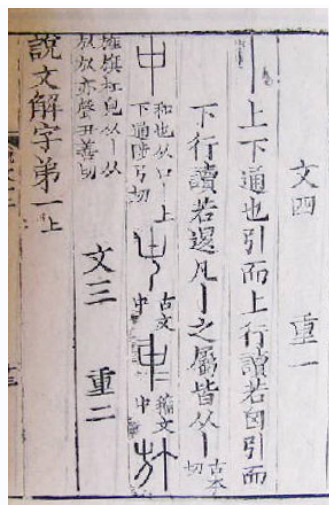 文四 重一
丨上下通也引而上行讀若囟引而
下行讀若𨓤凡丨之屬皆从丨古本切
中和也从口丨上下通陟弓切 古文中 籒文中
旌旗杠皃从丨从㫃㫃亦聲丑善切
文三 重二
說文解字弟一上